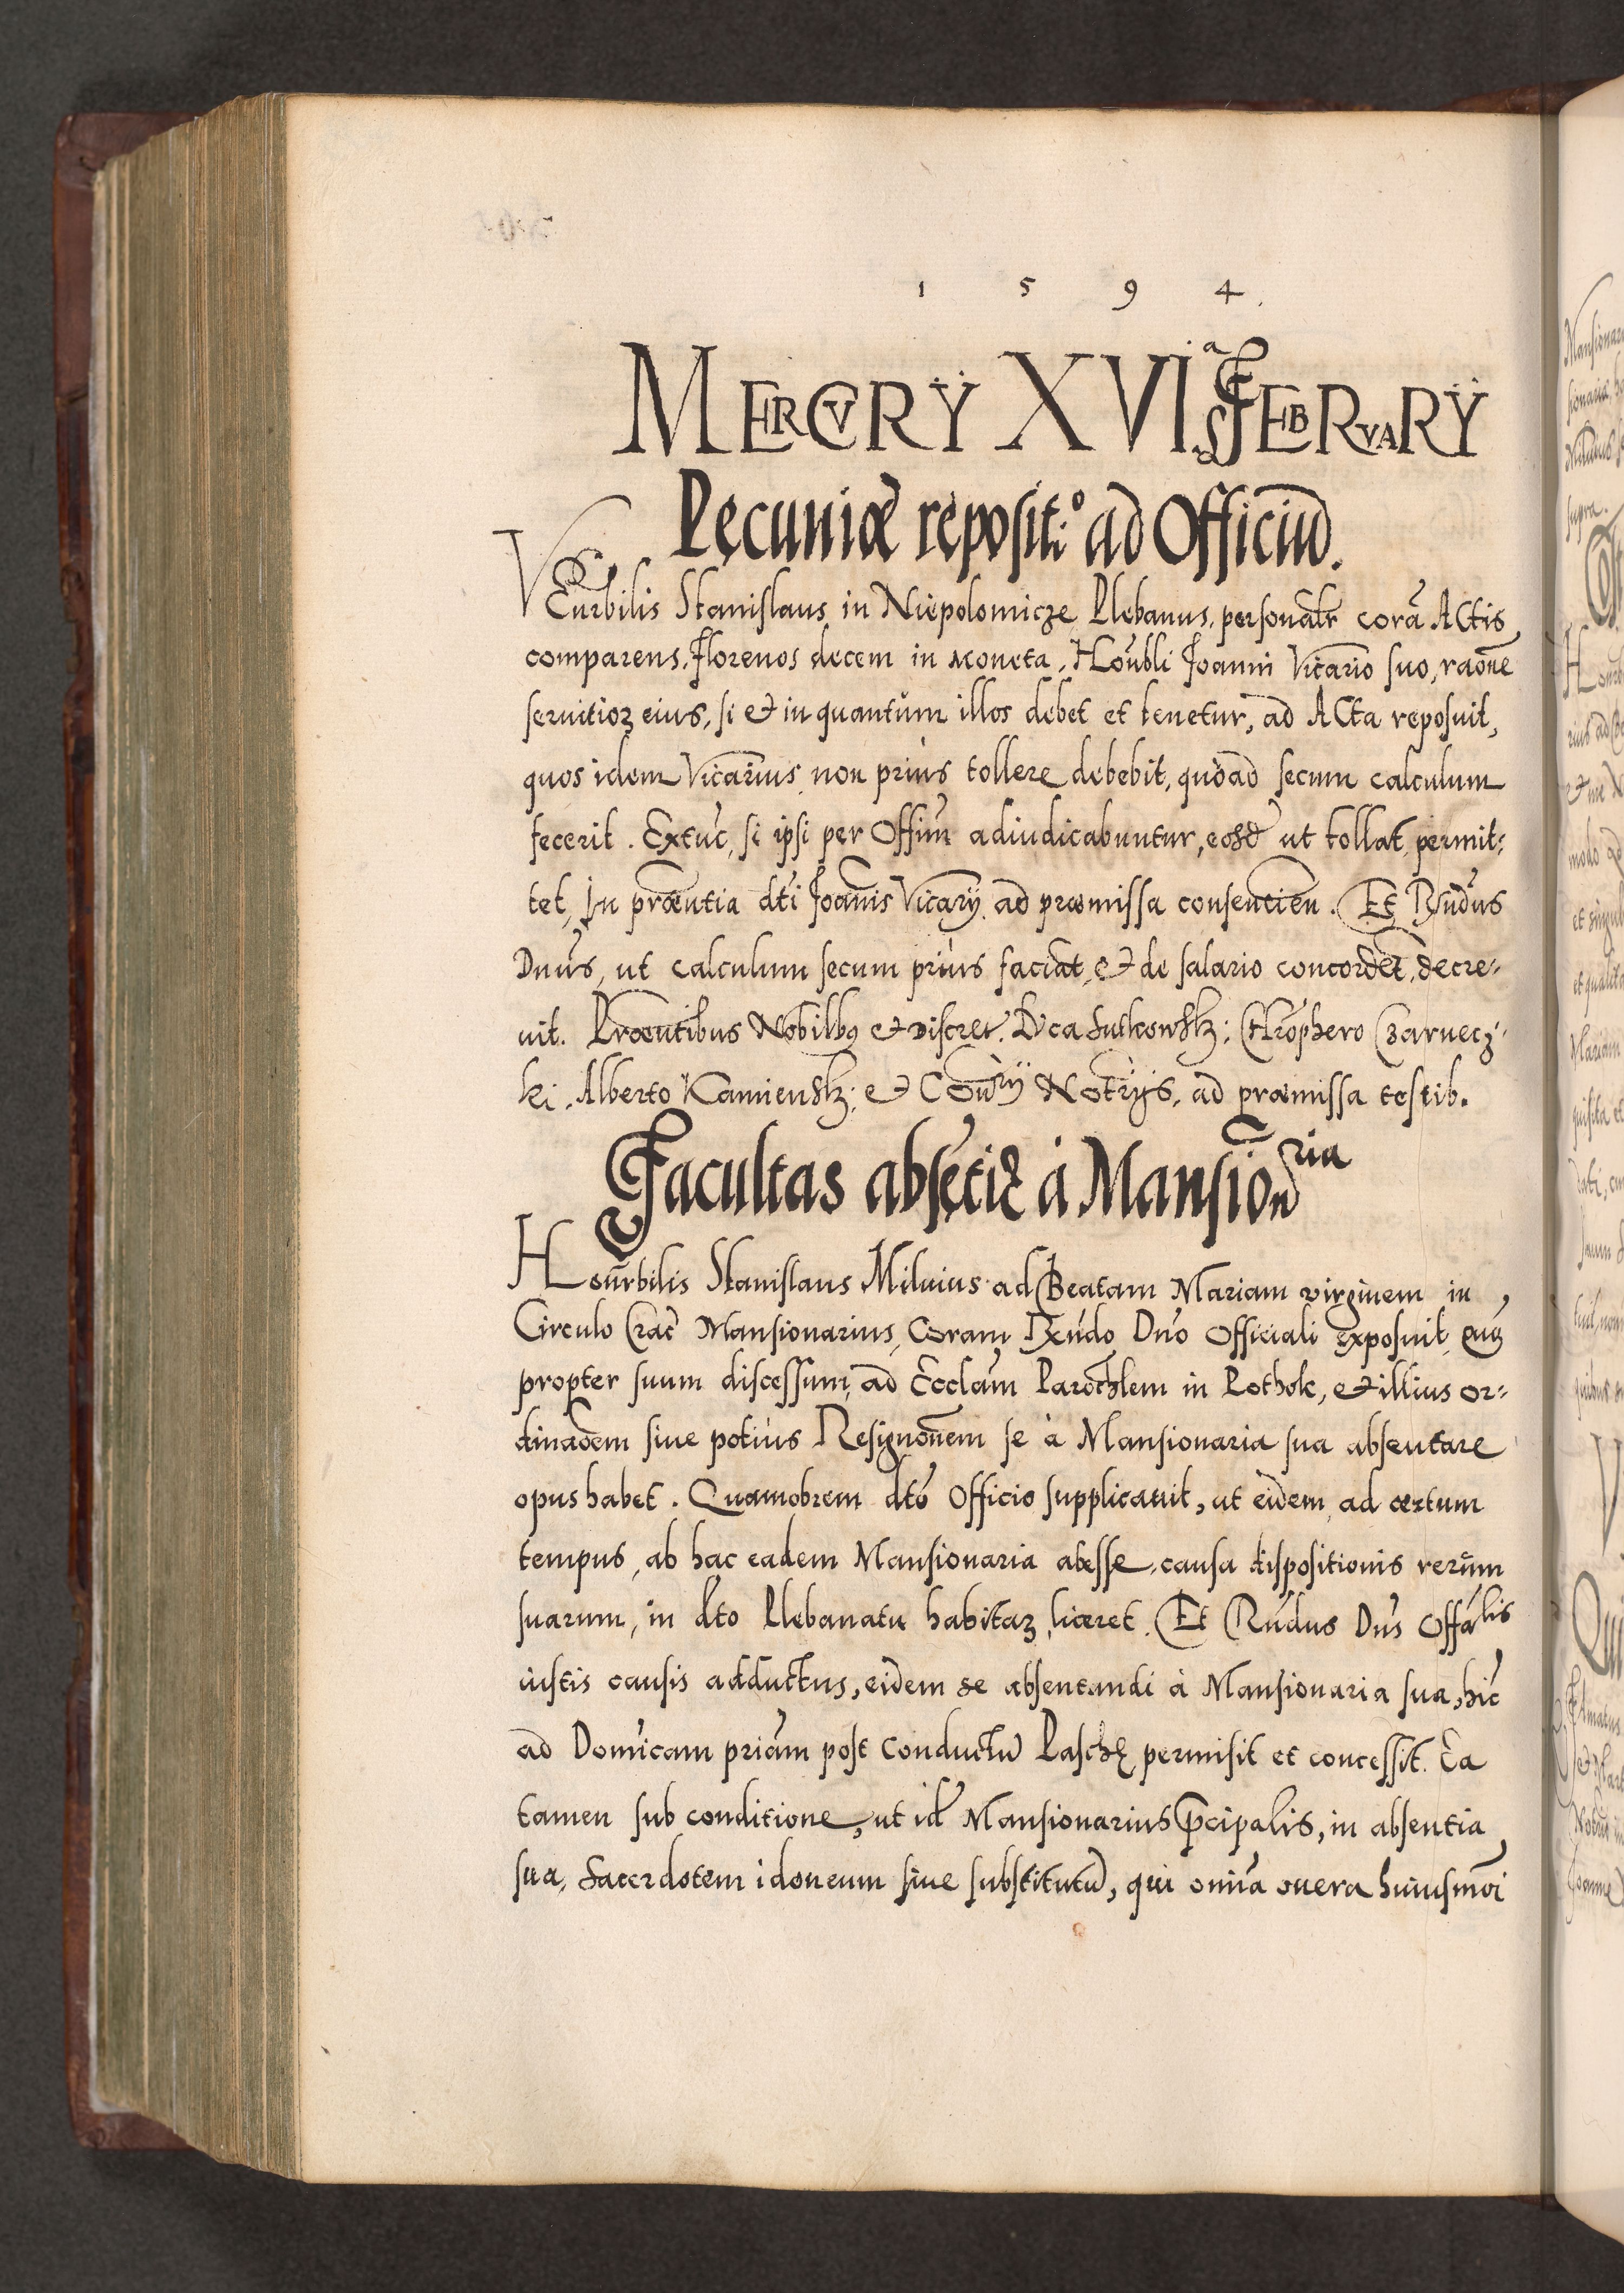 1 5 9 4.
MERCVRŸ XVIᵃ FEBRVARŸ
Pecuniæ repositi° ad Officiũ.
VEnrbilis Stanislaus in Niepolomicze Plebanus, personalr corã ACtis
comparens, Florenos decem in moneta, Honbli Joanni Vicario suo, raone
seruitioꝝ eius, si et inquantum illos debet et tenetur, ad ACta reposuit,
quos idem Vicarius, non prius tollere debebit, quoad secum calculum
fecerit. Extuc, si ipsi per Offim adiudicabuntur, eosd ut tollat, permit:
tet, In pręntia dti Joanis Vicarÿ ad præmissa consentien. Et Rndus
Dnus, ut calculum secum prius faciat, et de salario concordet, decre-
uit. Præntibus Nobilbꝫ et Discret. Luca Sutkowskꝫ; Chrophero Czarnecz-
ki, Alberto Kamienskꝫ; et Conrÿ Notrÿs, ad præmissa testib.
Facultas absẽtię à Mansionʳⁱᵃ
HOnrbilis Stanislaus Miluius ad Beatam Mariam virginem in
Circulo Crac Mansionarius, Coram Rndo Dno Officiali exposuit, quꝫ
propter suum discessum, ad Ecclam Parochlem in Pothok, et illius or-
dinaoem siue potius Resignonem se à Mansionaria sua absentare
opus habet. Quamobrem dto Officio supplicauit, ut eidem, ad certum
tempus, ab hac eadem Mansionaria abesse, causa dispositionis rerum
suarum, in dto Plebanatu habitaꝝ, liceret. Et Rndus Dns Offalis
iustis causis adductus, eidem se absentandi à Mansionaria sua, hic
ad Domicam priam post Conductũ Paschę permisit et concessit. Ea
tamen sub conditione, ut id Mansionarius Pcipalis, in absentia
sua, Sacerdotem idoneum siue substitutũ, qui omia onera huiusmoi